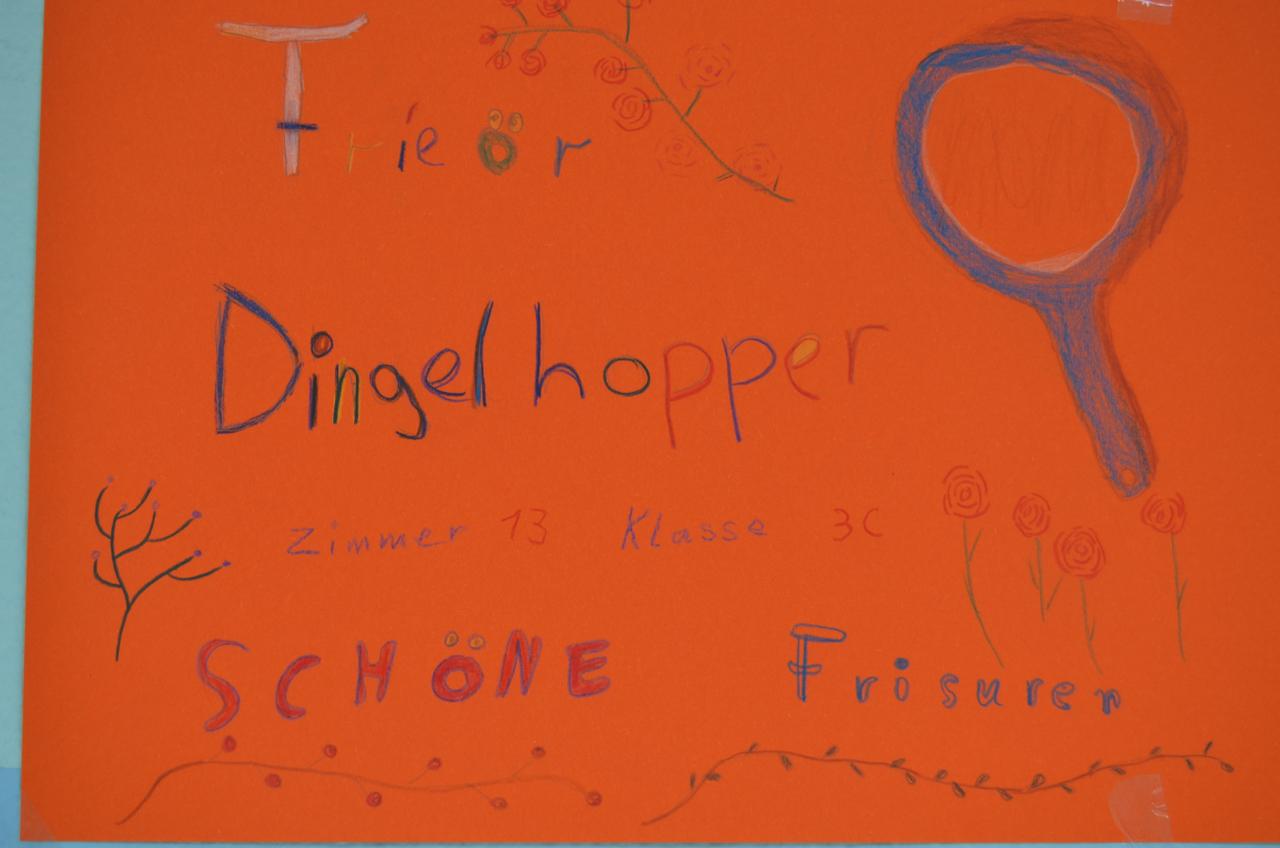 Frieör
Dingelhopper
Zimmer 13 Klasse 3C
SCHÖNE Frisuren